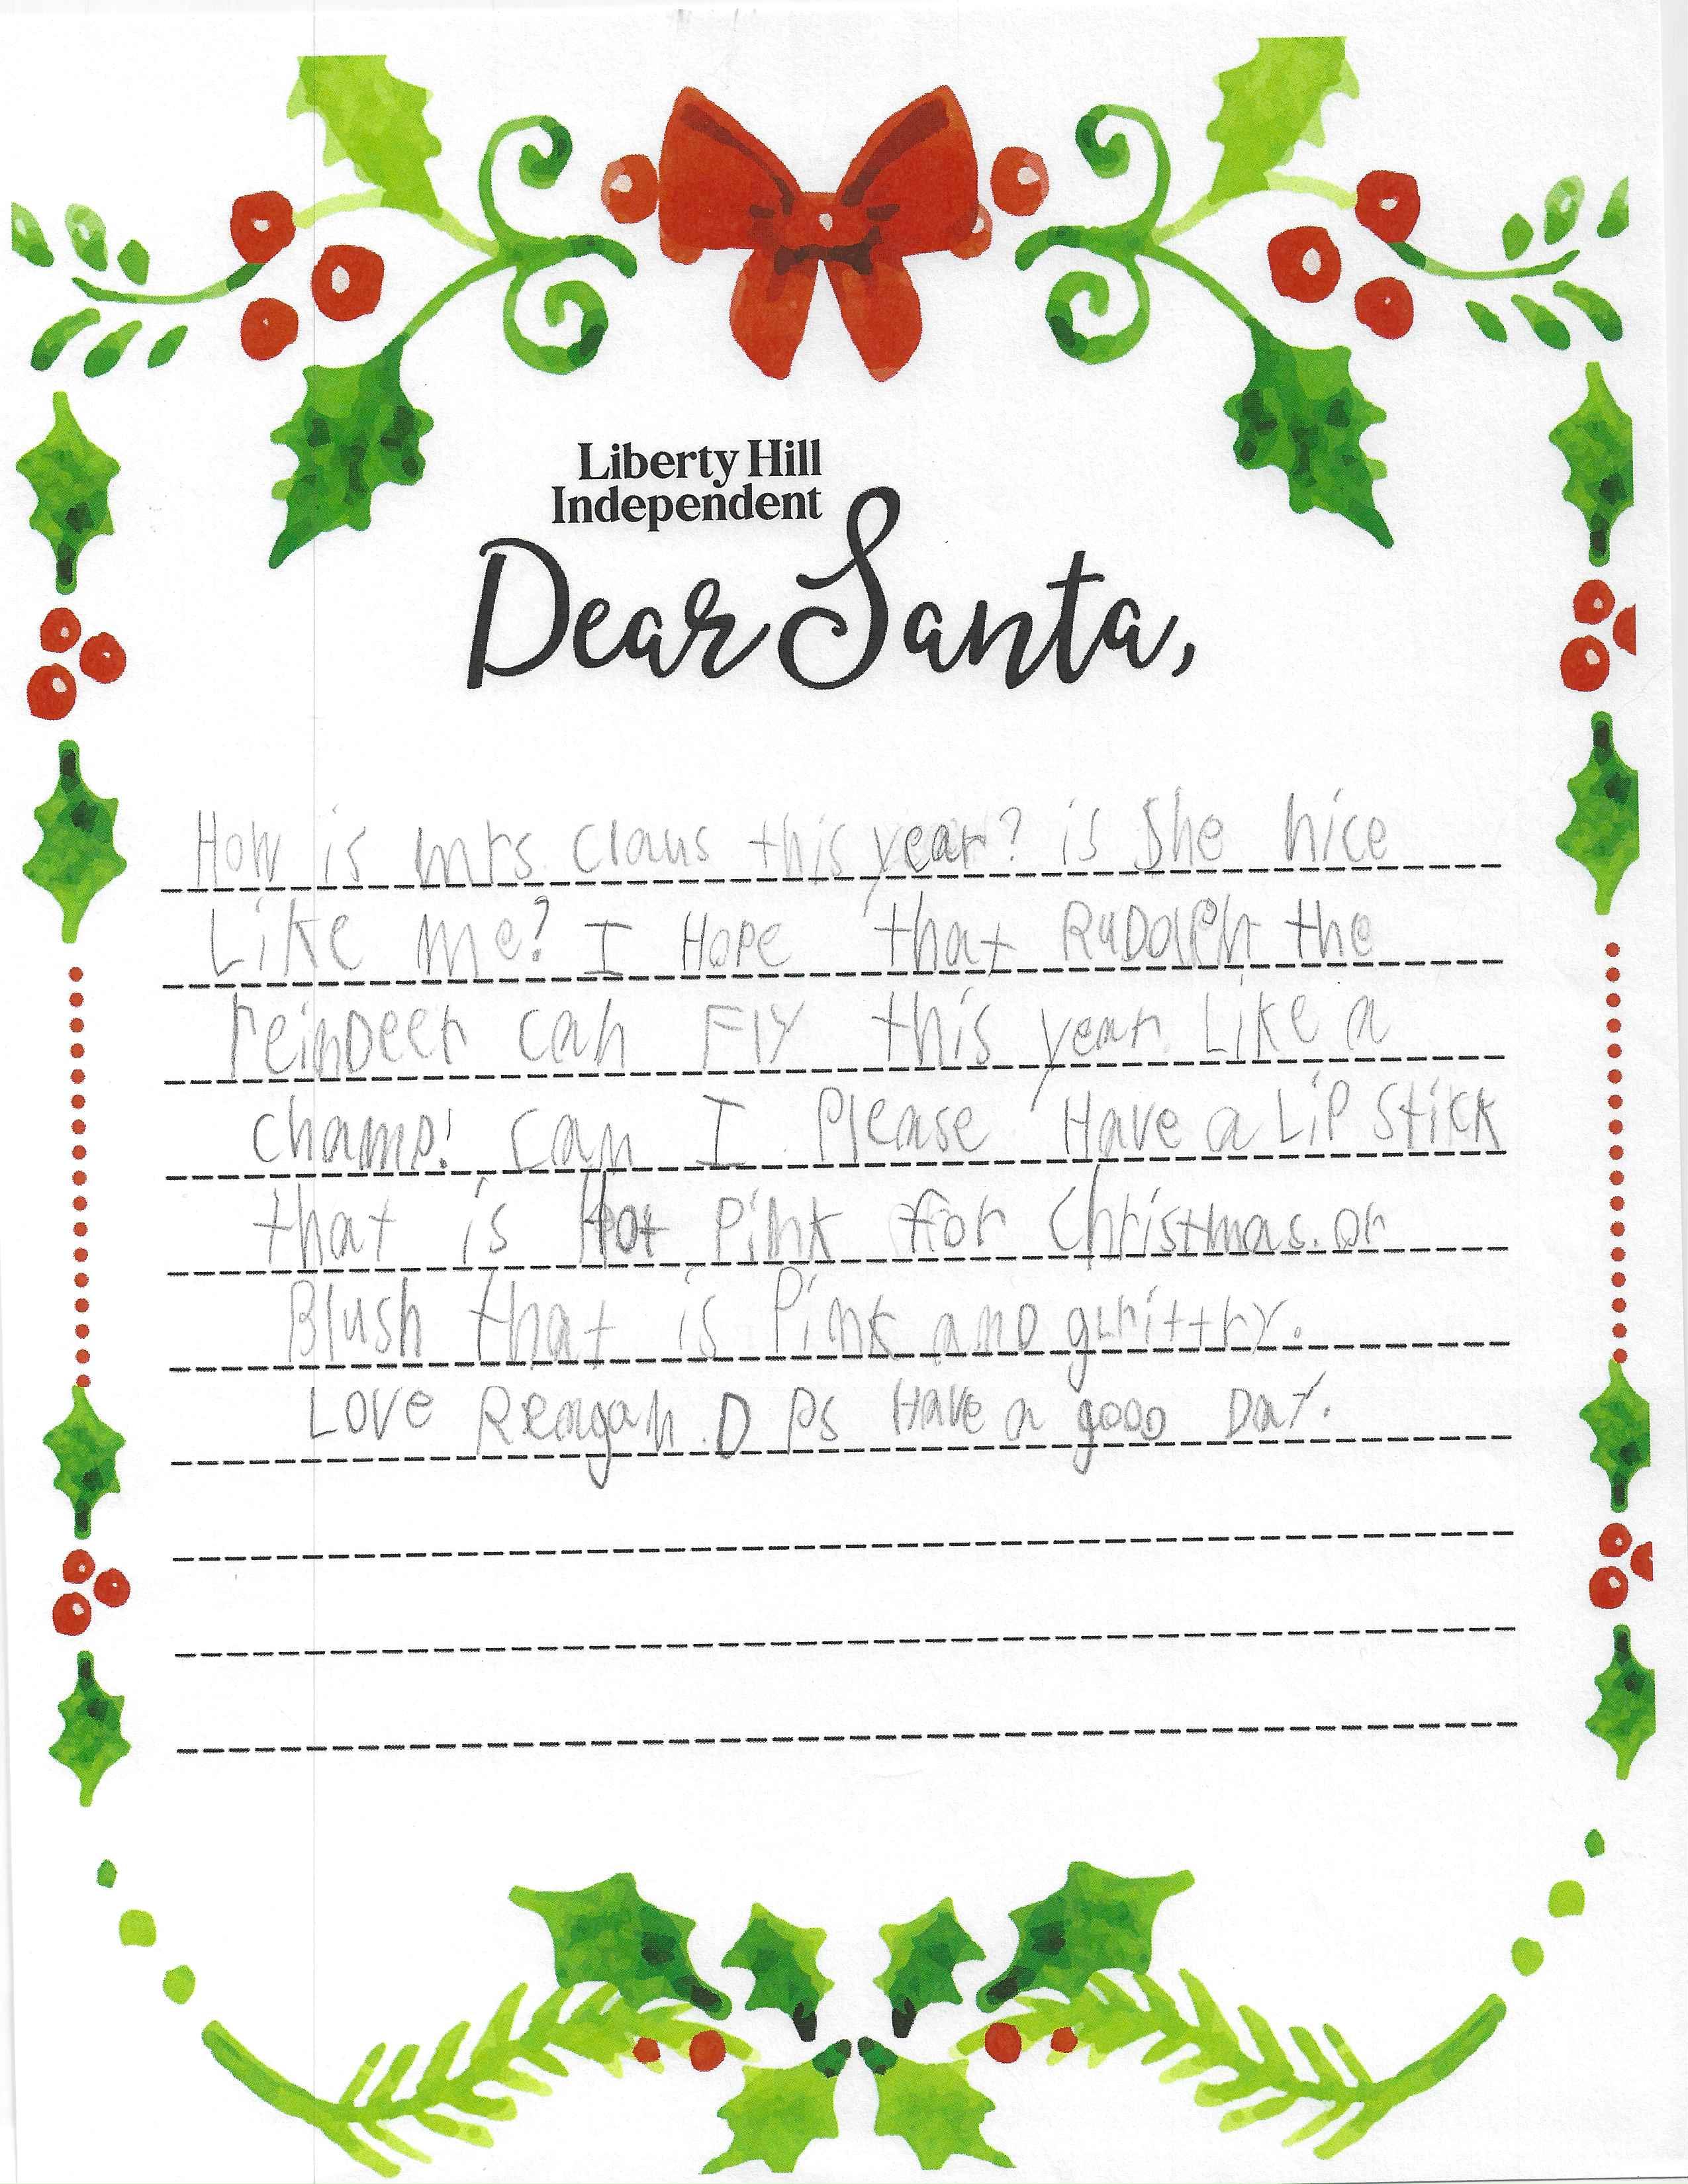 Liberty Hill
Independent
Dear Santa,
How is mrs. claus this year? is She nice
Like me? I HoPe that RuDolPh the
reinDeer can FlY this year Like a
champ! can I Please Have a LiP Stick
that is Hot Pink for Christmas. or
Blush that is Pink anD glrittry.
Love Reagan .D Ps Have a gooD Day.